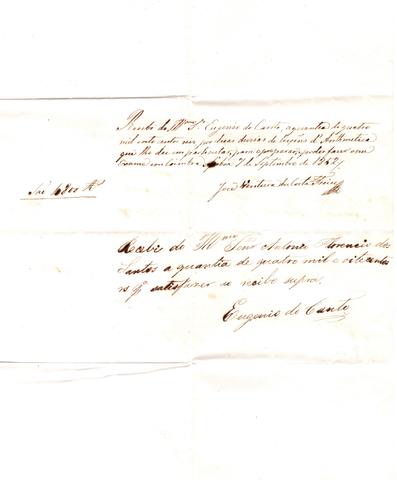 Recebi do Illmo Sr. Eugenio do Canto, a quantia de quatro
mil oito centos reis por duas duzias de lições d'Arithmetica
que lhe dei em particular, para o preparar, poder fazer o seu
exame em Coimbra. Lisboa 7 de Septembro de 1852
São 4800 Rs
José Ventura da Costa
Recebi do Illmo Senr Antonio Florencio dos
Santos a quantia de quatro mil e oitocentos
rs pa satisfazer ao recibo supra.
Eugenio do Canto